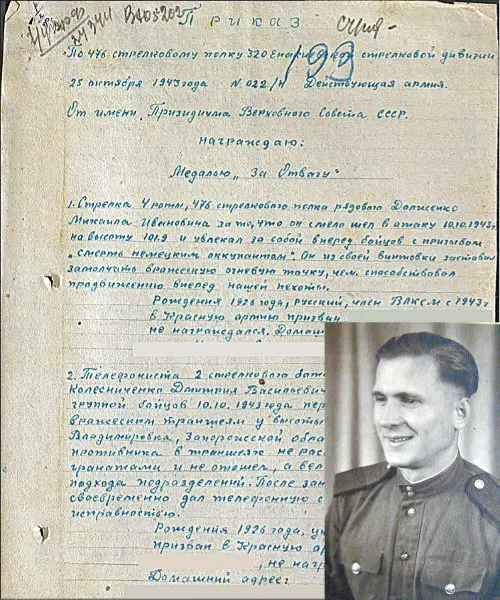 Приказ
По 476 стрелковому полку 320 Енакиевской стрелковой дивизии
193
25 октября 1943 года N 022/н Действующая армия.
От имени Призидиума Верховного Совета СССР.
награждаю:
Медалью „За Отвагу"
1. Стрелка 4 роты, 476 стрелкового полка рядового Долженко
Михаила Ивановича за то, что он смело шел в атаку 10.10.1943г.
на высоту 101.9 и увлекал за собой вперед бойцов с призывом
„смерть немецким оккупантам". Он из своей винтовки заставил
замолчать вражескую огневую точку, чем способствовал
продвижению вперед нашей пехоты.
Рождения 1926 года, русский, член ВЛКСМ с 1943г.
в Красную армию призван
не награждался. Домаш
2. Телефониста 2 стрелкового бат
Колесниченко Дмитрия Васильевич
группой бойцов 10.10.1943 года пер
вражеским траншеям у высоты
Владимировка, Запорожской обла
противника в траншеях не рас
гранатами и не отошел, а вел
подхода подразделений. После зан
своевременно дал телефонную с
исправностью.
Рождения 1926 года, ук
призван в Красную ар
, не нагр
Домашний адрес: